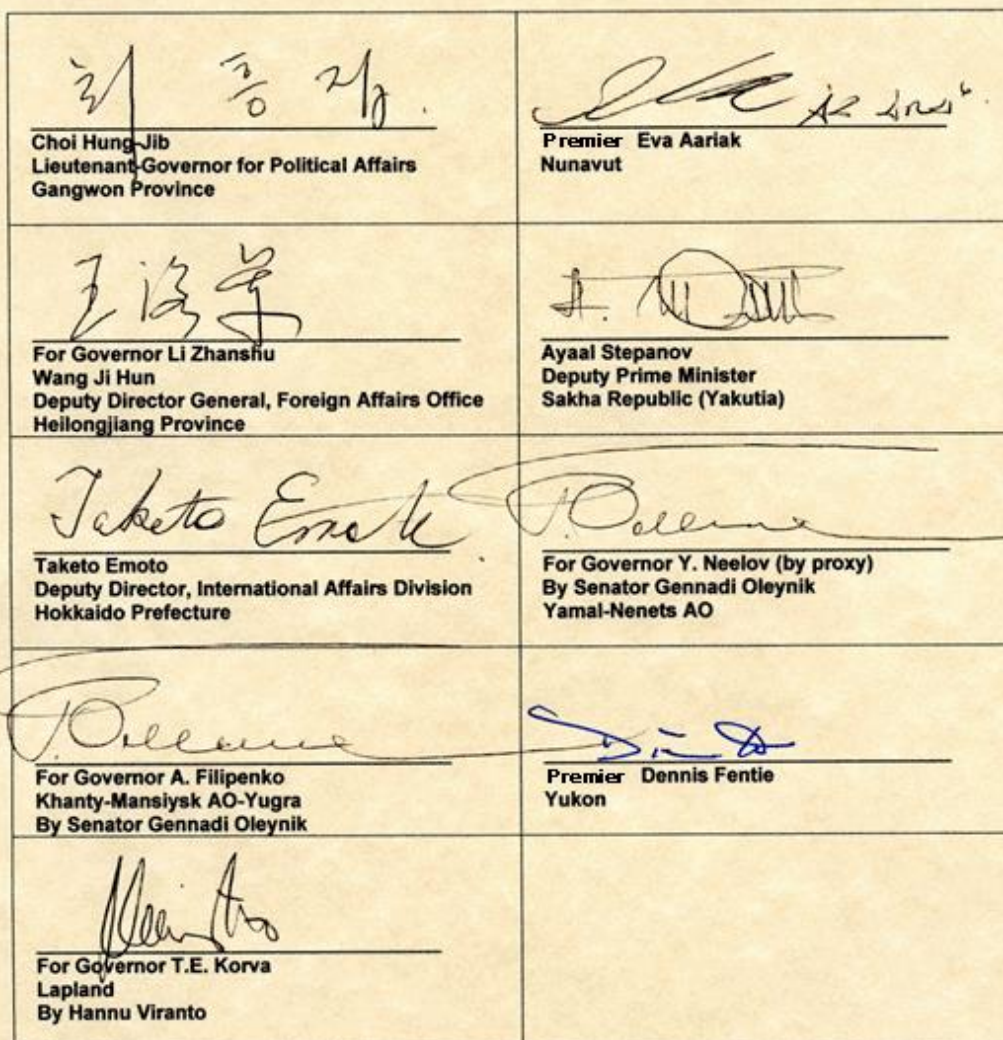 최 흥 집.
Choi Hung Jib
Lieutenant-Governor for Political Affairs
Gangwon Province
Premier Eva Aariak
Nunavut
For Governor Li Zhanshu
Wang Ji Hun
Deputy Director General, Foreign Affairs Office
Heilongjiang Province
Ayaal Stepanov
Deputy Prime Minister
Sakha Republic (Yakutia)
Taketo Emoto
Taketo Emoto
Deputy Director, International Affairs Division
Hokkaido Prefecture
For Governor Y. Neelov (by proxy)
By Senator Gennadi Oleynik
Yamal-Nenets AO
For Governor A. Filipenko
Khanty-Mansiysk AO-Yugra
By Senator Gennadi Oleynik
Premier Dennis Fentie
Yukon
For Governor T.E. Korva
Lapland
By Hannu Viranto